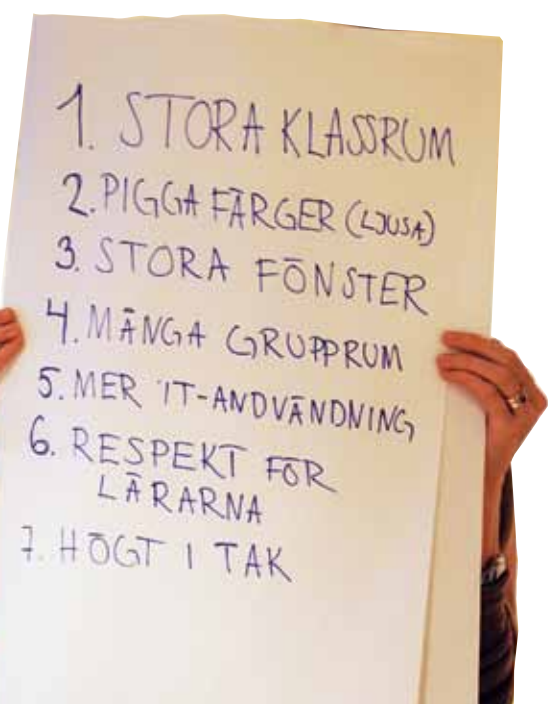 1. STORA KLASSRUM
2. PIGGA FÄRGER (LJUSA)
3. STORA FÖNSTER
4. MÅNGA GRUPPRUM
5. MER IT-ANDVÄNDNING
6. RESPEKT FÖR
LÄRARNA
7. HÖGT I TAK